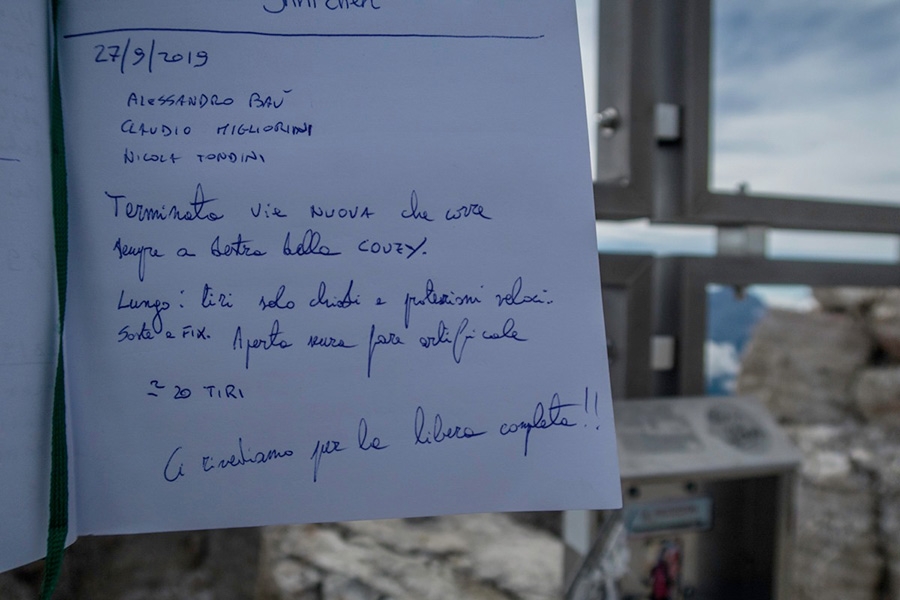 27/9/2019
ALESSANDRO BAÙ
CLAUDIO MIGLIORINI
NICOLA TONDINI
Terminata vie NUOVA che corre
sempre a destra della COUZY.
Lungo i tiri solo chiodi e protezioni veloci..
Soste a FIX. Aperta senza fare artificiale
≃ 20 TIRI
Ci rivediamo per la libera completa!!